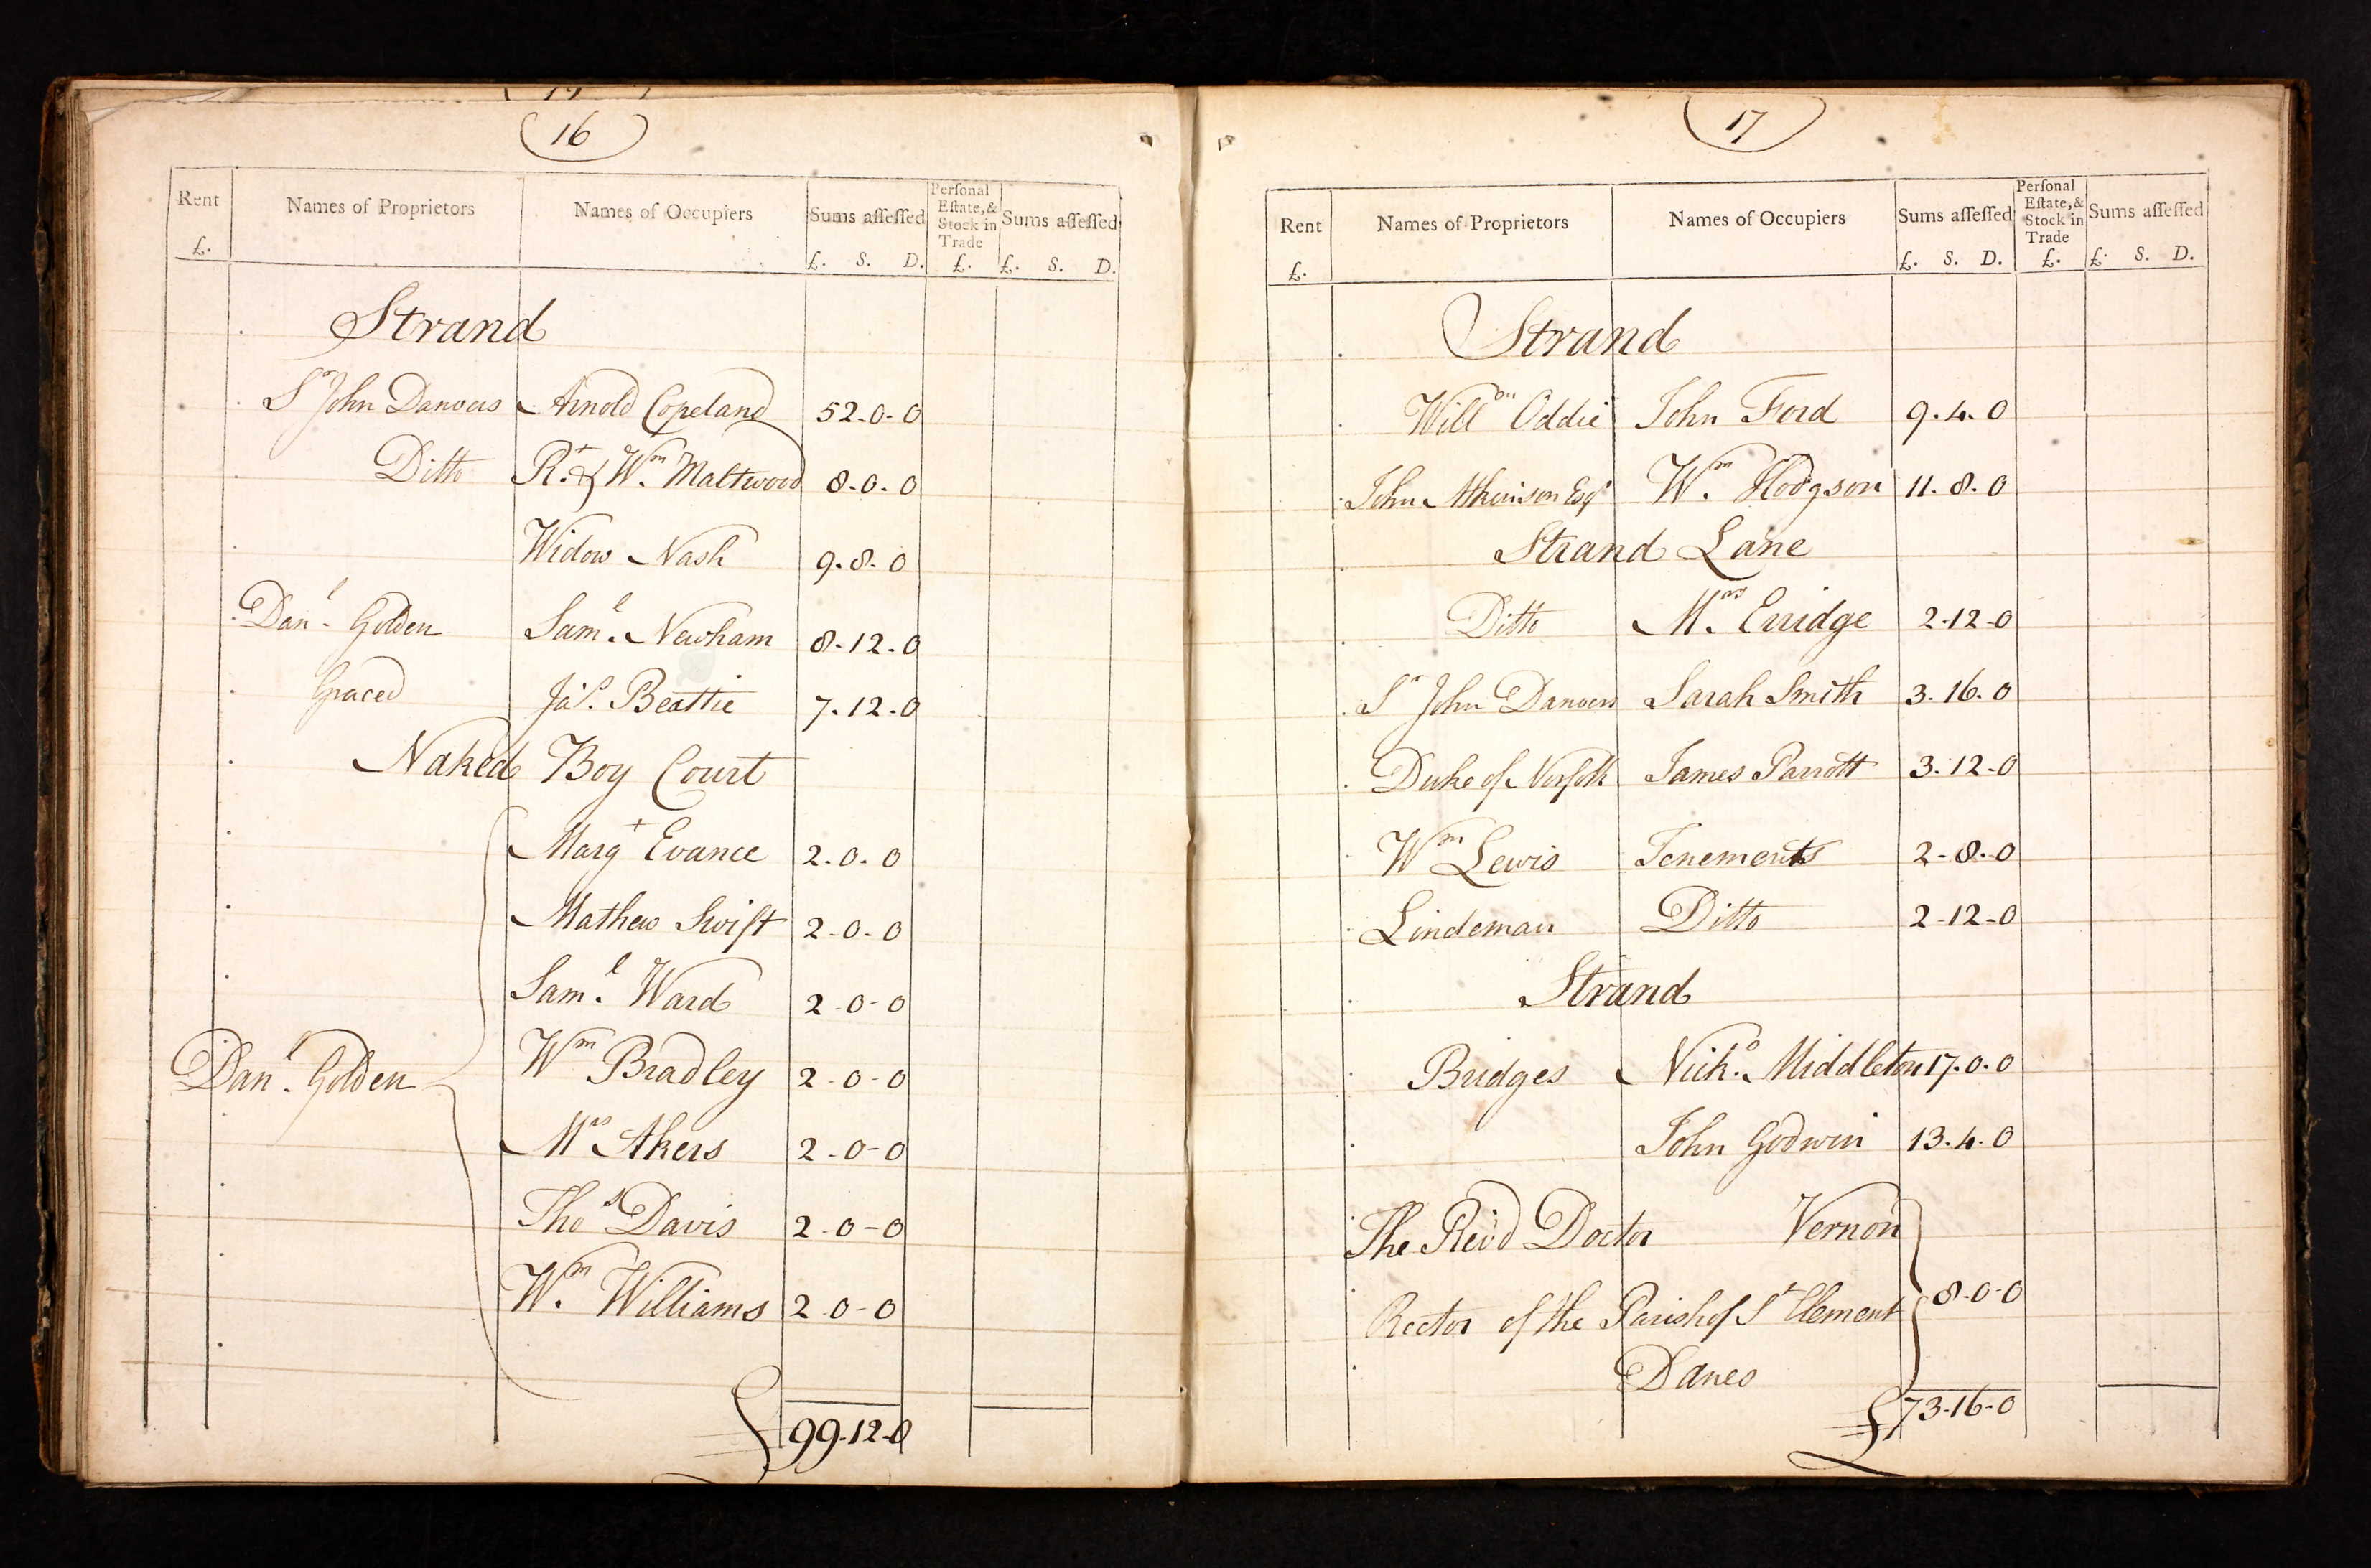 16
Rent £.
Names of Proprietors
Names of Occupiers
Sums aſſeſſed £. S. D.
Perſonal Eſtate, & Stock in Trade £.
Sums aſſeſſed £. S. D.
Strand
Sr John Danvers Arnold Copeland 52-0-0
Ditto Rt. & Wm. Maltwood 8-0-0
Widow Nash 9-8-0
Danl. Golden Saml. Newham 8-12-0
Graced Jas. Beattie 7-12-0
Naked Boy Court
Margt Evance 2-0-0
Mathew Swift 2-0-0
Saml. Ward 2-0-0
Danl. Golden Wm Bradley 2-0-0
Mrs Akers 2-0-0
Thos Davis 2-0-0
Wm. Williams 2-0-0
£ 99-12-0
17
Rent £.
Names of Proprietors
Names of Occupiers
Sums aſſeſſed £. S. D.
Perſonal Eſtate, & Stock in Trade £.
Sums aſſeſſed £. S. D.
Strand
Willm Oddie John Ford 9-4-0
John Atkinson Esqr Wm. Hodgson 11-8-0
Strand Lane
Ditto Mrs. Erridge 2-12-0
Sr John Danvers Sarah Smith 3-16-0
Duke of Norfolk James Parrott 3-12-0
Wm Lewis Tenements 2-8-0
Lindeman Ditto 2-12-0
Strand
Bridges Nicho. Middleton 17-0-0
John Godwin 13-4-0
The Rev'd Doctor Vernon
Rector of the Parish of St Clement 8-0-0
Danes
£ 73-16-0